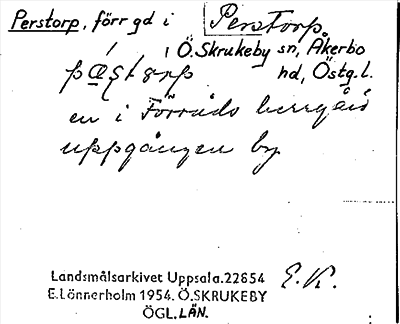 Perstorp, förr gd i Perstorp,
Ö. Skrukeby sn, Åkerbo
hd, Östg. l.
en i Förråds herrgård
uppgången by
Landsmålsarkivet Uppsala. 22654
E. Lönnerholm 1954. Ö. SKRUKEBY
ÖGL. LÄN.
E. K.